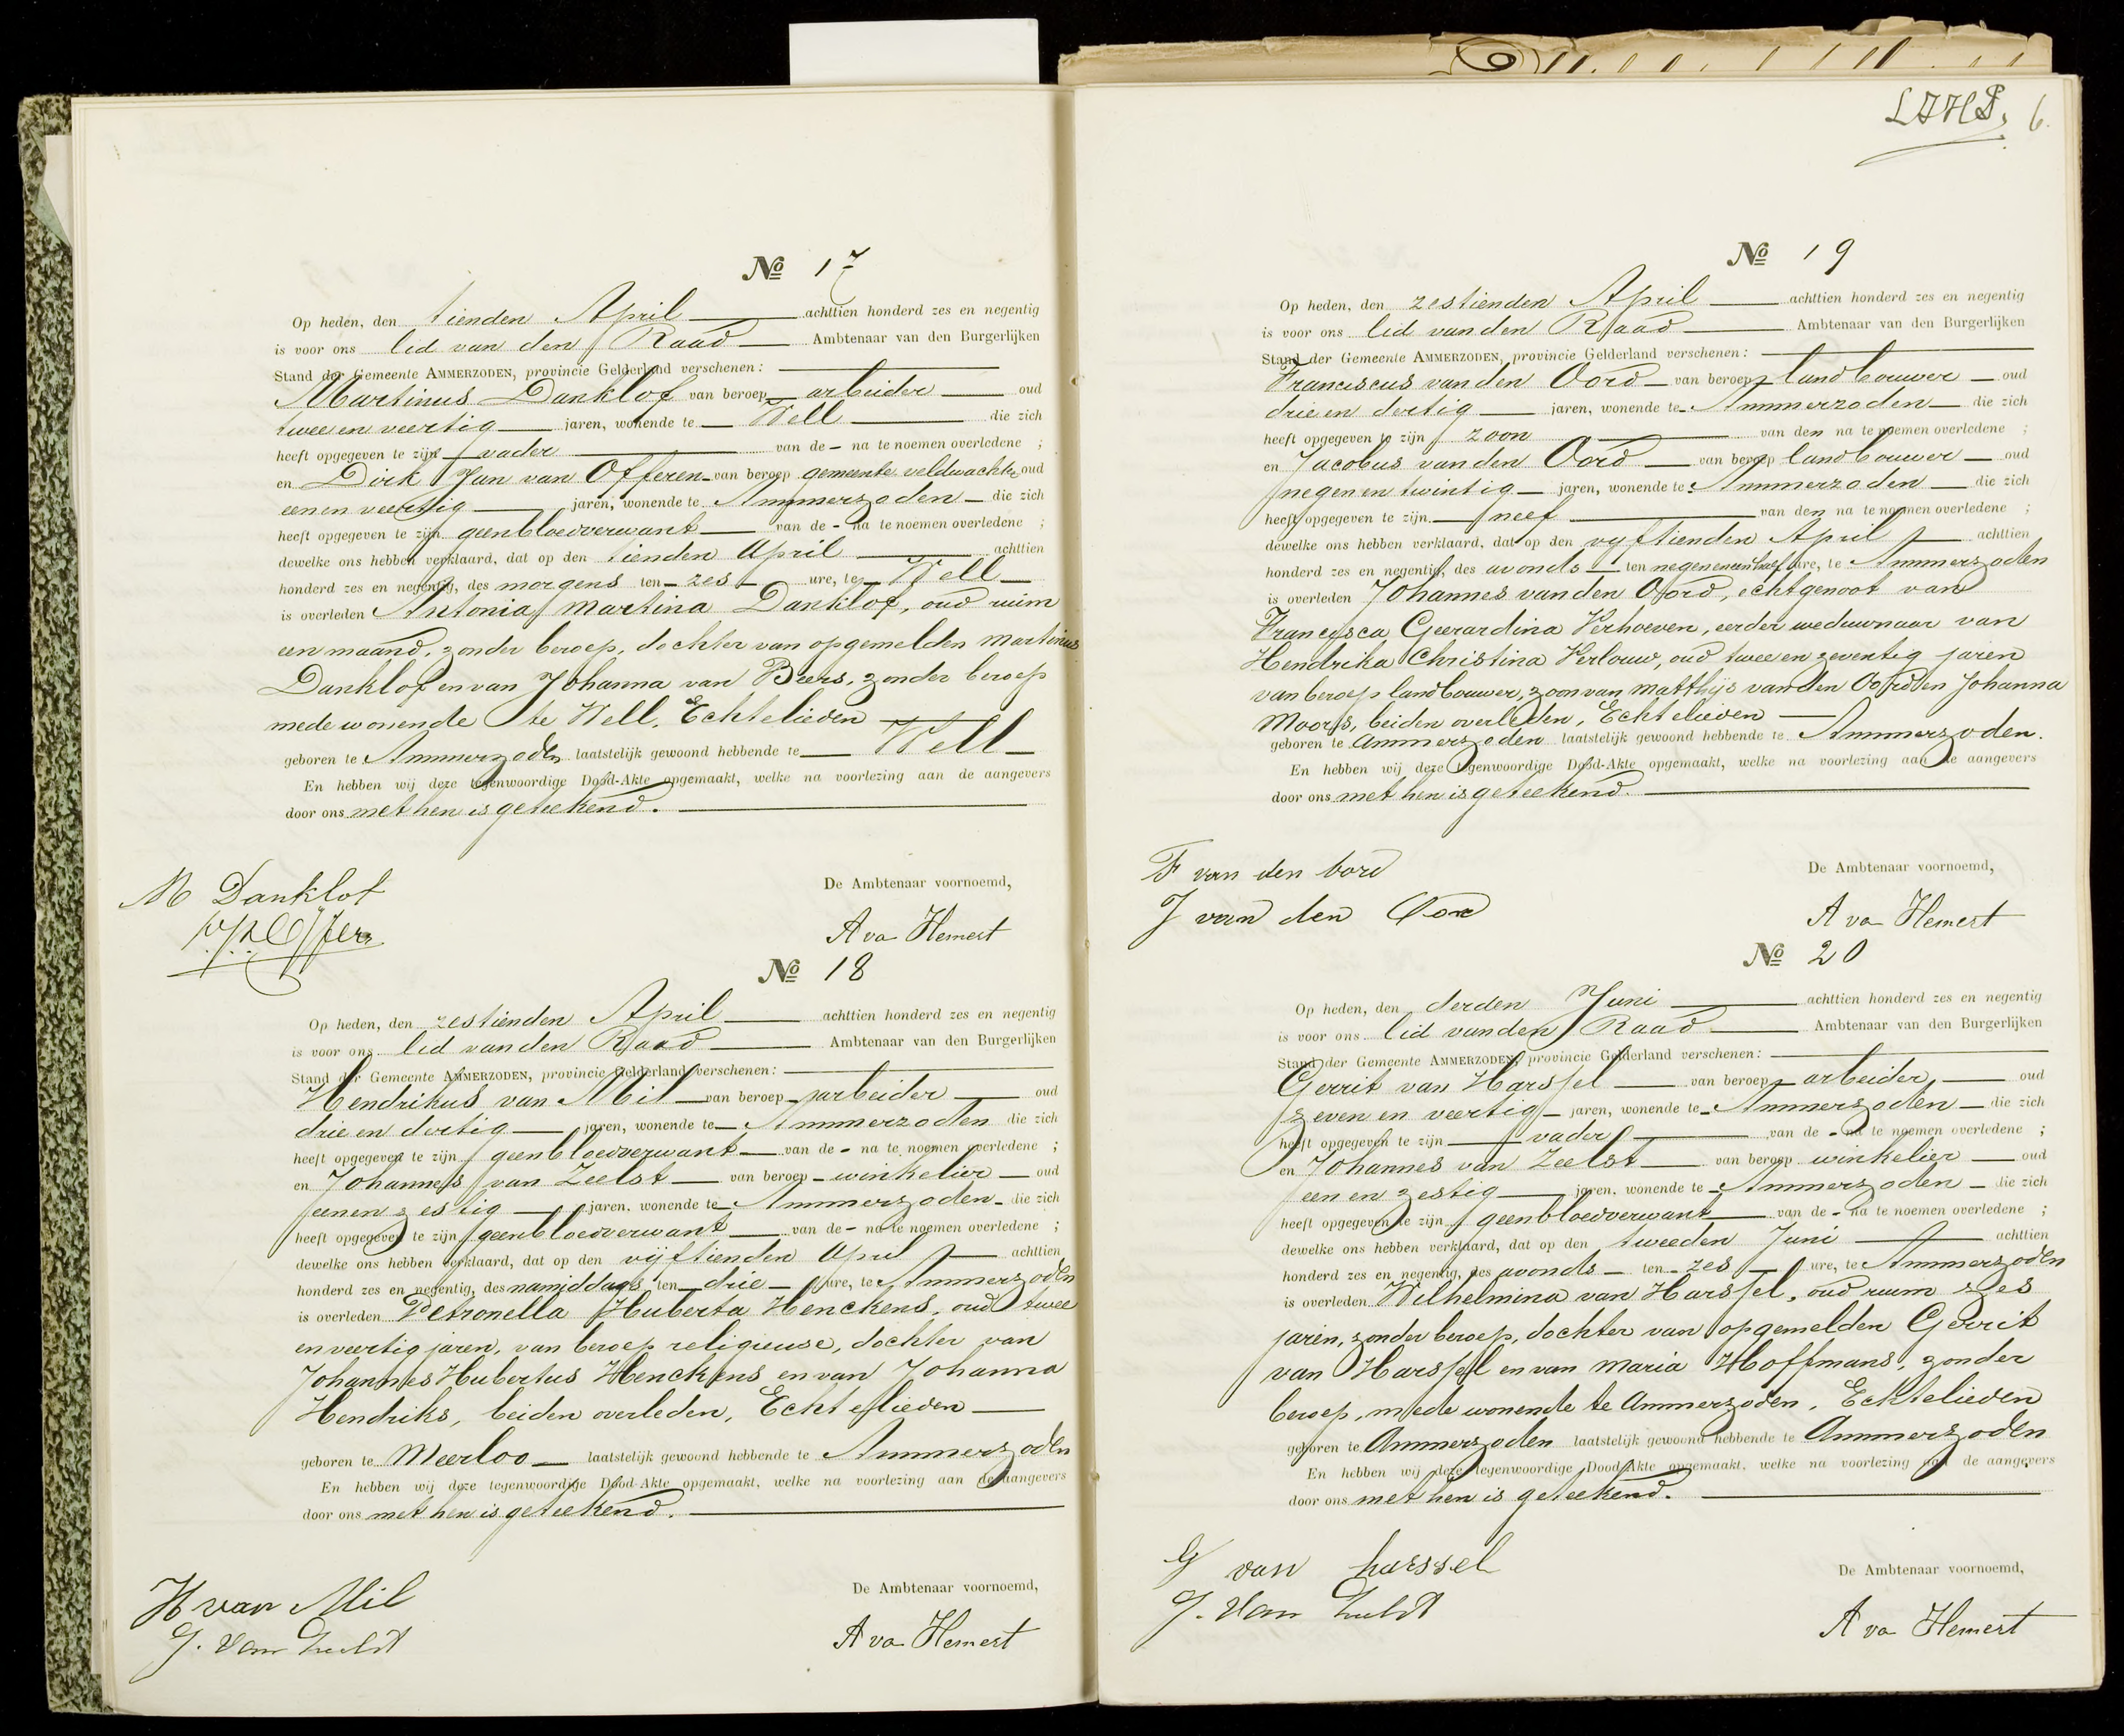 Nº 17
Op heden, den tienden April achttien honderd zes en negentig
is voor ons lid van den Raad Ambtenaar van den Burgerlijken
Stand der Gemeente AMMERZODEN, provincie Gelderland verschenen:
Martinus Danklof van beroep arbeider oud
twee en veertig jaren, wonende te Well die zich
heeft opgegeven te zijn vader van de - na te noemen overledene ;
en Dirk Jan van Offeren van beroep gemeente veldwachter oud
een en veertig jaren, wonende te Ammerzoden die zich
heeft opgegeven te zijn geen bloedverwant van de - na te noemen overledene ;
dewelke ons hebben verklaard, dat op den tienden April achttien
honderd zes en negentig, des morgens ten zes ure, te Well
is overleden Antonia Martina Danklof, oud ruim
een maand, zonder beroep, dochter van opgemelden Martinus
Danklof en van Johanna van Beers, zonder beroep
mede wonende te Well, Echtelieden
geboren te Ammerzoden laatstelijk gewoond hebbende te Well
En hebben wij deze tegenwoordige Dood-Akte opgemaakt, welke na voorlezing aan de aangevers
door ons met hen is geteekend.
De Ambtenaar voornoemd,
M Danklof
A va Hemert
Nº 18
Op heden, den zestienden April achttien honderd zes en negentig
is voor ons lid van den Raad Ambtenaar van den Burgerlijken
Stand der Gemeente AMMERZODEN, provincie Gelderland verschenen:
Hendrikus van Mil van beroep arbeider oud
drie en dertig jaren, wonende te Ammerzoden die zich
heeft opgegeven te zijn geen bloedverwant van de - na te noemen overledene ;
en Johannes van Zeelst van beroep winkelier oud
een en zestig jaren, wonende te Ammerzoden die zich
heeft opgegeven te zijn geen bloedverwant van de - na te noemen overledene ;
dewelke ons hebben verklaard, dat op den vijftienden April achttien
honderd zes en negentig, des namiddags ten drie ure, te Ammerzoden
is overleden Petronella Huberta Henckens, oud twee
en veertig jaren, van beroep religieuse, dochter van
Johannes Hubertus Henckens en van Johanna
Hendriks, beiden overleden, Echtelieden
geboren te Meerloo laatstelijk gewoond hebbende te Ammerzoden
En hebben wij deze tegenwoordige Dood-Akte opgemaakt, welke na voorlezing aan de aangevers
door ons met hen is geteekend.
De Ambtenaar voornoemd,
H van Mil
J. Van Zeelst
A va Hemert
6.
Nº 19
Op heden, den zestienden April achttien honderd zes en negentig
is voor ons lid van den Raad Ambtenaar van den Burgerlijken
Stand der Gemeente AMMERZODEN, provincie Gelderland verschenen:
Franciscus van den Oord van beroep landbouwer oud
drie en dertig jaren, wonende te Ammerzoden die zich
heeft opgegeven te zijn zoon van den na te noemen overledene ;
en Jacobus van den Oord van beroep landbouwer oud
negen en twintig jaren, wonende te Ammerzoden die zich
heeft opgegeven te zijn neef van den na te noemen overledene ;
dewelke ons hebben verklaard, dat op den vijftienden April achttien
honderd zes en negentig, des avonds ten negen en een half ure, te Ammerzoden
is overleden Johannes van den Oord, echtgenoot van
Francysca Geerardina Verhoeven, eerder weduwnaar van
Hendrika Christina Verlouw, oud twee en zeventig jaren
van beroep landbouwer, zoon van Matthijs van den Oord en Johanna
Moors, beiden overleden, Echtelieden
geboren te Ammerzoden laatstelijk gewoond hebbende te Ammerzoden.
En hebben wij deze tegenwoordige Dood-Akte opgemaakt, welke na voorlezing aan de aangevers
door ons met hen is geteekend.
De Ambtenaar voornoemd,
F van den oord
J van den Oord
A va Hemert
Nº 20
Op heden, den derden Juni achttien honderd zes en negentig
is voor ons lid van den Raad Ambtenaar van den Burgerlijken
Stand der Gemeente AMMERZODEN, provincie Gelderland verschenen:
Gerrit van Harssel van beroep arbeider oud
zeven en veertig jaren, wonende te Ammerzoden die zich
heeft opgegeven te zijn vader van de - na te noemen overledene ;
en Johannes van Zeelst van beroep winkelier oud
een en zestig jaren, wonende te Ammerzoden die zich
heeft opgegeven te zijn geen bloedverwant van de - na te noemen overledene ;
dewelke ons hebben verklaard, dat op den tweeden Juni achttien
honderd zes en negentig, des avonds ten zes ure, te Ammerzoden
is overleden Wilhelmina van Harssel, oud ruim zes
jaren, zonder beroep, dochter van opgemelden Gerrit
van Harssel en van Maria Hoffmans, zonder
beroep, mede wonende te Ammerzoden, Echtelieden
geboren te Ammerzoden laatstelijk gewoond hebbende te Ammerzoden
En hebben wij deze tegenwoordige Dood-Akte opgemaakt, welke na voorlezing aan de aangevers
door ons met hen is geteekend.
De Ambtenaar voornoemd,
G van harssel
J. Van Zeelst
A va Hemert